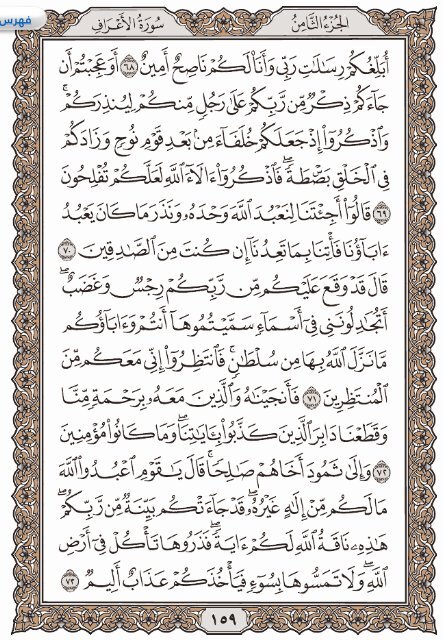 فهرس
سُورَةُ الأَعْرَافِ
الجُزْءُ الثَّامِنُ
أُبَلِّغُكُمْ رِسَٰلَٰتِ رَبِّي وَأَنَا۠ لَكُمْ نَاصِحٌ أَمِينٌ ٦٨ أَوَعَجِبْتُمْ أَن
جَآءَكُمْ ذِكْرٌ مِّن رَّبِّكُمْ عَلَىٰ رَجُلٍ مِّنكُمْ لِيُنذِرَكُمْ ۚ
وَٱذْكُرُوٓا۟ إِذْ جَعَلَكُمْ خُلَفَآءَ مِنۢ بَعْدِ قَوْمِ نُوحٍ وَزَادَكُمْ
فِى ٱلْخَلْقِ بَصْۜطَةً ۖ فَٱذْكُرُوٓا۟ ءَالَآءَ ٱللَّهِ لَعَلَّكُمْ تُفْلِحُونَ
٦٩ قَالُوٓا۟ أَجِئْتَنَا لِنَعْبُدَ ٱللَّهَ وَحْدَهُۥ وَنَذَرَ مَا كَانَ يَعْبُدُ
ءَابَآؤُنَا ۖ فَأْتِنَا بِمَا تَعِدُنَآ إِن كُنتَ مِنَ ٱلصَّٰدِقِينَ ٧٠
قَالَ قَدْ وَقَعَ عَلَيْكُم مِّن رَّبِّكُمْ رِجْسٌ وَغَضَبٌ ۖ
أَتُجَٰدِلُونَنِى فِىٓ أَسْمَآءٍ سَمَّيْتُمُوهَآ أَنتُمْ وَءَابَآؤُكُم
مَّا نَزَّلَ ٱللَّهُ بِهَا مِن سُلْطَٰنٍ ۚ فَٱنتَظِرُوٓا۟ إِنِّى مَعَكُم مِّنَ
ٱلْمُنتَظِرِينَ ٧١ فَأَنجَيْنَٰهُ وَٱلَّذِينَ مَعَهُۥ بِرَحْمَةٍ مِّنَّا
وَقَطَعْنَا دَابِرَ ٱلَّذِينَ كَذَّبُوا۟ بِـَٔايَٰتِنَا ۖ وَمَا كَانُوا۟ مُؤْمِنِينَ
٧٢ وَإِلَىٰ ثَمُودَ أَخَاهُمْ صَٰلِحًا ۗ قَالَ يَٰقَوْمِ ٱعْبُدُوا۟ ٱللَّهَ
مَا لَكُم مِّنْ إِلَٰهٍ غَيْرُهُۥ ۖ قَدْ جَآءَتْكُم بَيِّنَةٌ مِّن رَّبِّكُمْ ۖ
هَٰذِهِۦ نَاقَةُ ٱللَّهِ لَكُمْ ءَايَةً ۖ فَذَرُوهَا تَأْكُلْ فِىٓ أَرْضِ
ٱللَّهِ ۖ وَلَا تَمَسُّوهَا بِسُوٓءٍ فَيَأْخُذَكُمْ عَذَابٌ أَلِيمٌ ٧٣
١٥٩